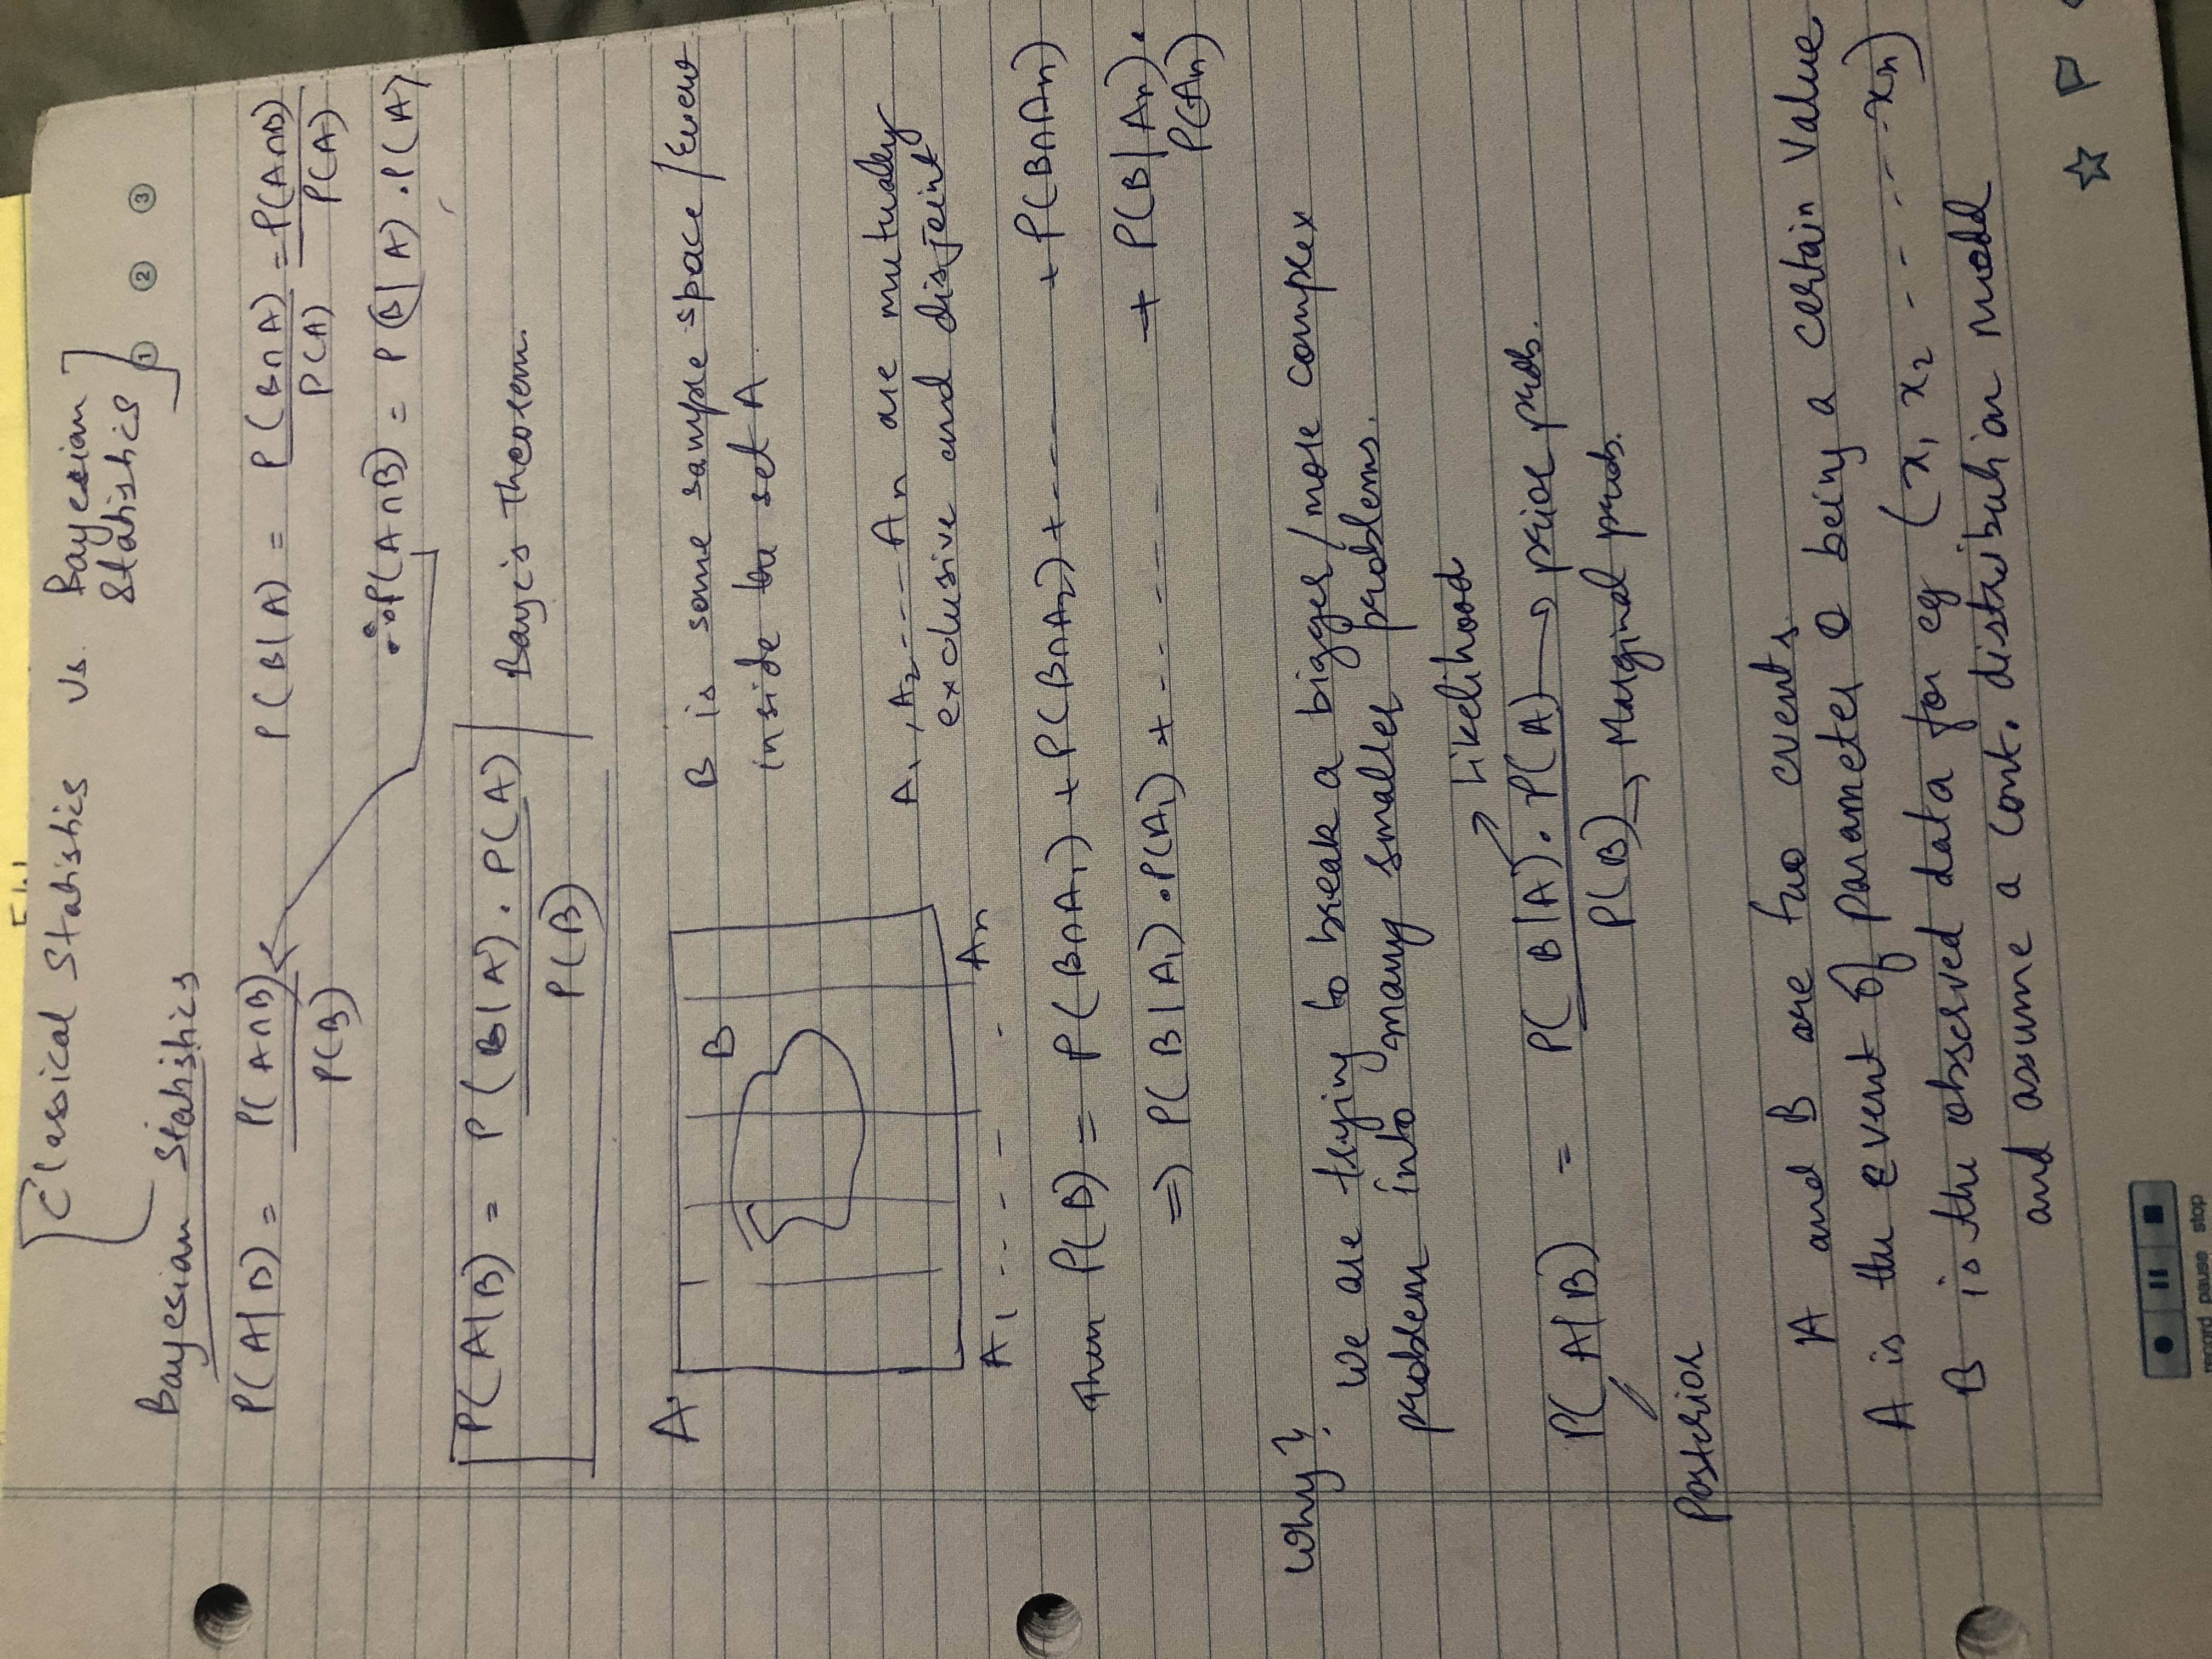 [Classical Statistics vs. Bayesian
Statistics]
① ② ③
Bayesian Statistics
P(A|B) = P(A∩B) / P(B)
P(B|A) = P(B∩A) / P(A) = P(A∩B) / P(A)
∴ P(A∩B) = P(B|A) . P(A)
P(A|B) = P(B|A) . P(A) / P(B)
Baye's Theorem.
A
B
B is some sample space / Event
inside the set A.
A₁, A₂ ---- An are mutually
exclusive and disjoint
A₁ ---- - An
Then P(B) = P(B∩A₁) + P(B∩A₂) + ---- + P(B∩An)
⇒ P(B|A₁) . P(A₁) + ------ + P(B|An) .
P(An)
Why?
We are trying to break a bigger / more complex
problem into many smaller problems.
→ Likelihood
P(A|B) = P(B|A) . P(A) / P(B)
→ prior prob.
→ Marginal prob.
Posterior
A and B are two events.
A is the event of parameter θ being a certain value
B is the observed data for eg (x₁ x₂ ------ xn)
and assume a cont. distribution model
record pause stop